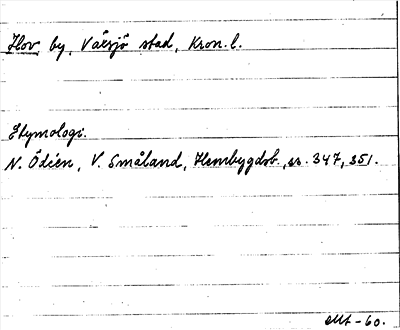 Hov, by, Växjö stad, Kron. l.
Etymologi.
N. Ödéen, V. Småland, Hembygdsb., ss. 347, 351.
-60.